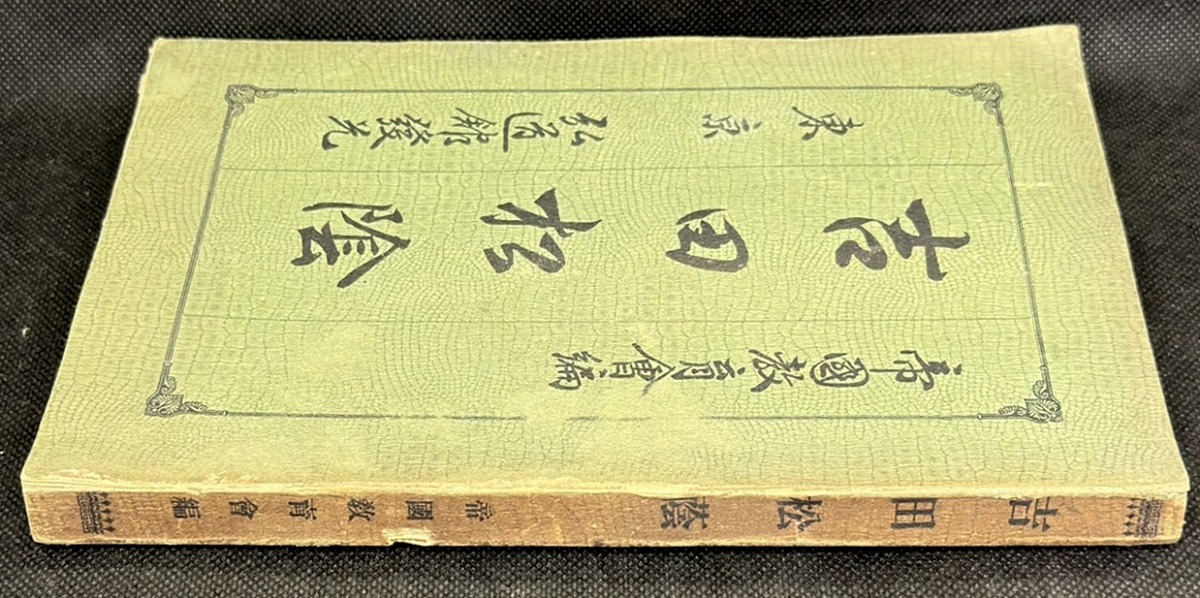 帝國教育會編
吉田松陰
東京 弘道館發兌
吉田松蔭 帝國教育會編